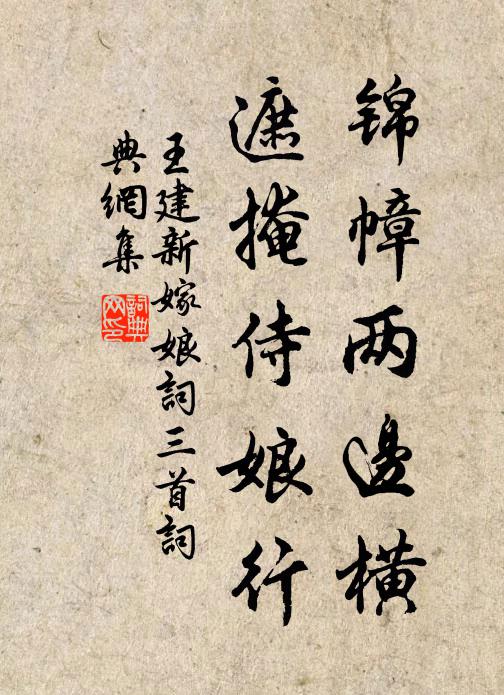 锦幛两邊横
遮掩侍娘行
王建新嫁娘詞三首詞
典網集
詞典網印